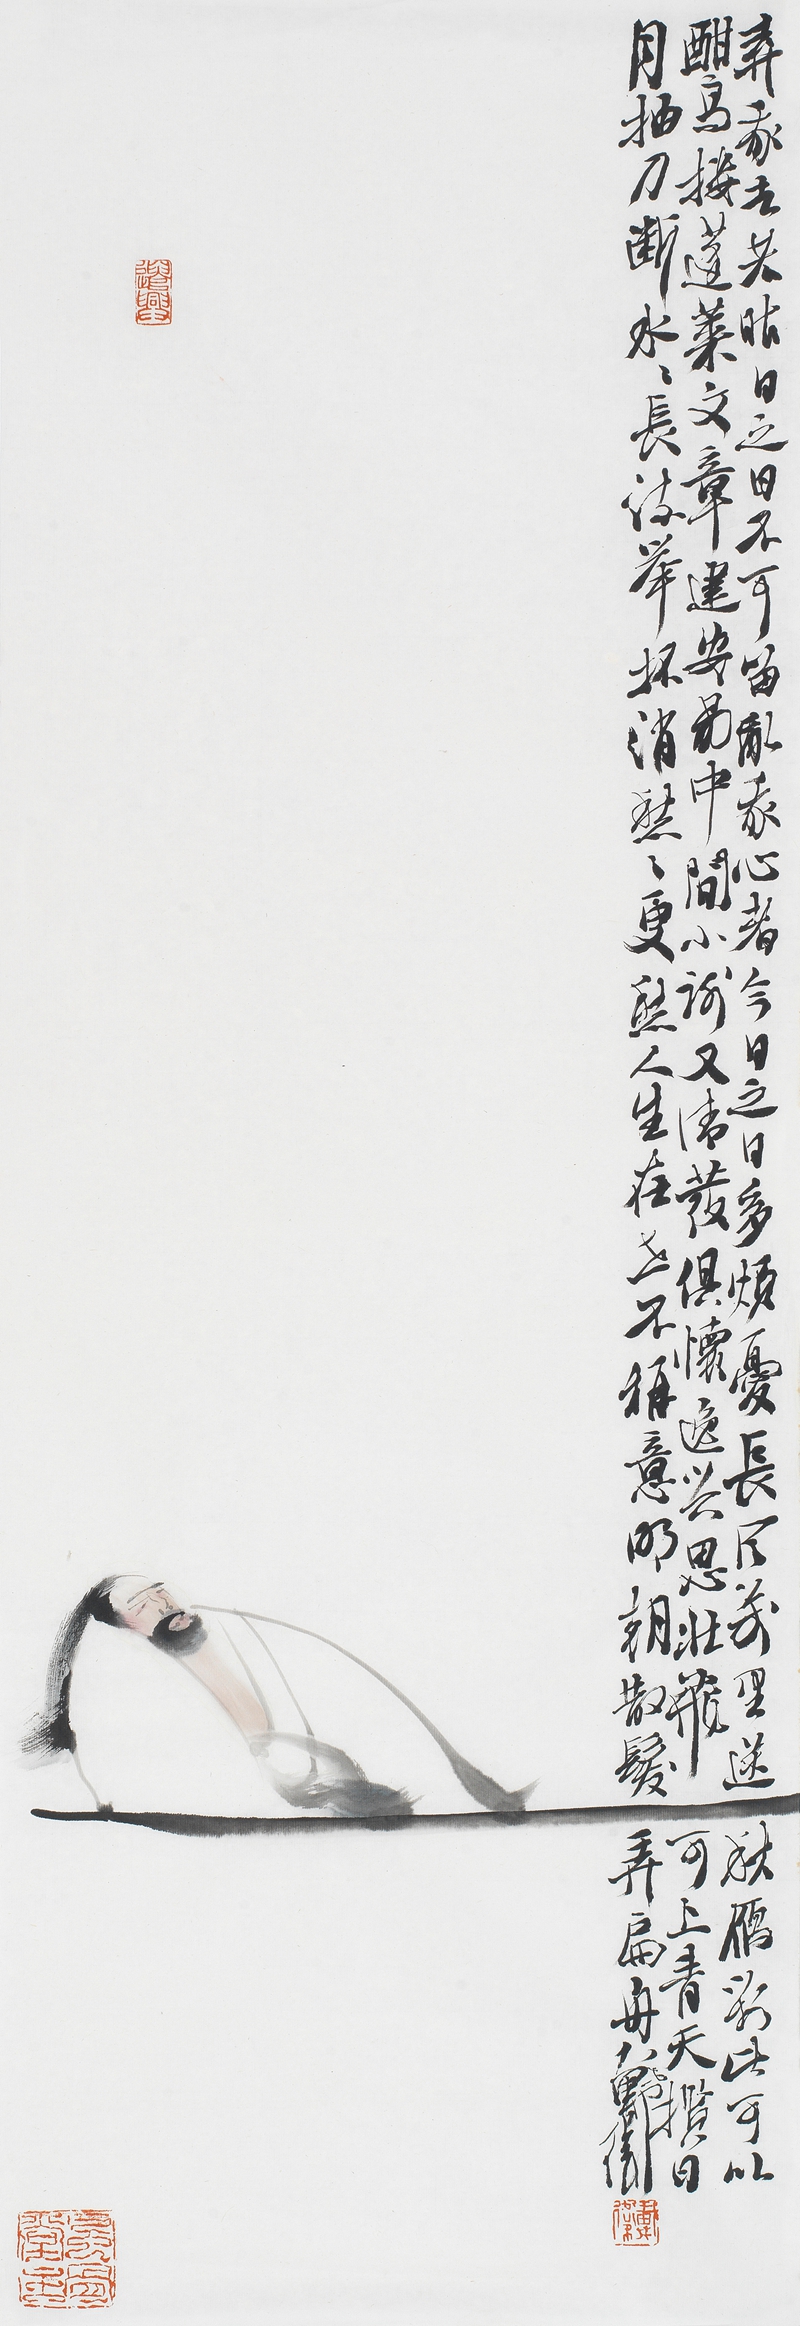 弃我去者昨日之日不可留亂我心者今日之日多煩憂長风萬里送秋雁對此可以
酣高楼蓬莱文章建安骨中間小謝又清發俱懷逸兴思壯飛可上青天攬日
月抽刀斷水〻長流举杯消愁〻更愁人生在世不稱意明朝散髮弄扁舟戴衛